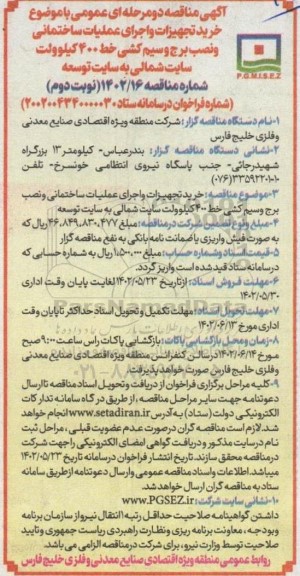 آگهی مناقصه دو مرحله ای عمومی با موضوع
خرید تجهیزات و اجرای عملیات ساختمانی
و نصب برج و سیم کشی خط ۴۰۰ کیلوولت
سایت شمالی به سایت توسعه
شماره مناقصه ۱۴۰۲/۱۶ (نوبت دوم)
P.G.M.I.S.E.Z
(شماره فراخوان در سامانه ستاد ۲۰۰۲۰۰۴۳۴۰۰۰۰۰۳۰)
۱-نام دستگاه مناقصه گزار: شرکت منطقه ویژه اقتصادی صنایع معدنی
وفلزی خلیج فارس
۲-نشانی دستگاه مناقصه گزار: بندرعباس- کیلومتر ۱۳ بزرگراه
شهید رجائی- جنب پاسگاه نیروی انتظامی خونسرخ- تلفن
(۰۷۶)۳۳۵۹۲۲۰۱۰۱
۳-موضوع مناقصه: خرید تجهیزات و اجرای عملیات ساختمانی و نصب
برج و سیم کشی خط ۴۰۰ کیلوولت سایت شمالی به سایت توسعه
۴-مبلغ و نوع تضمین شرکت در مناقصه: مبلغ ۴۶,۸۴۹,۸۳۰,۴۷۷ ریال که
به صورت فیش واریزی یا ضمانت نامه بانکی به نفع مناقصه گزار
۵-قیمت اسناد و شماره حساب: مبلغ ۱,۵۰۰,۰۰۰ ریال به شماره حسابی که
در سامانه ستاد قید شده است واریز گردد.
۶-مهلت فروش اسناد: از تاریخ ۱۴۰۲/۰۵/۲۳ لغایت پایان وقت اداری
۱۴۰۲/۰۵/۳۰
۷-مهلت تحویل اسناد: مهلت تکمیل و تحویل اسناد حداکثر تا پایان وقت
اداری مورخ ۱۴۰۲/۰۶/۱۳
۸-زمان و محل بازگشایی پاکات: بازگشایی پاکات راس ساعت ۹:۰۰ صبح
مورخ ۱۴۰۲/۰۶/۱۴ در سالن کنفرانس منطقه ویژه اقتصادی صنایع معدنی
و فلزی خلیج فارس صورت خواهد پذیرفت.
۹-کلیه مراحل برگزاری فراخوان از دریافت و تحویل اسناد مناقصه تا ارسال
دعوتنامه جهت سایر مراحل مناقصه، از طریق درگاه سامانه تدارکات
الکترونیکی دولت (ستاد) به آدرس www.setadiran.ir انجام خواهد
شد. لازم است مناقصه گران در صورت عدم عضویت قبلی، مراحل ثبت
نام در سایت مذکور و دریافت گواهی امضای الکترونیکی را جهت شرکت
در مناقصه محقق سازند. تاریخ انتشار فراخوان در سامانه تاریخ ۱۴۰۲/۰۵/۲۳
میباشد. اطلاعات و اسناد مناقصه عمومی و ارسال دعوتنامه از طریق سامانه
ستاد به مناقصه گران ارسال خواهد شد.
۱۰-نشانی سایت شرکت: www.PGSEZ.ir
داشتن گواهینامه صلاحیت حداقل رتبه ۱ انتقال نیرو از سازمان برنامه
و بودجه، معاونت برنامه ریزی و نظارت راهبردی ریاست جمهوری و تایید
صلاحیت توسط وزارت نیرو، برای شرکت در مناقصه الزامی می باشد.
روابط عمومی منطقه ویژه اقتصادی صنایع معدنی و فلزی خلیج فارس